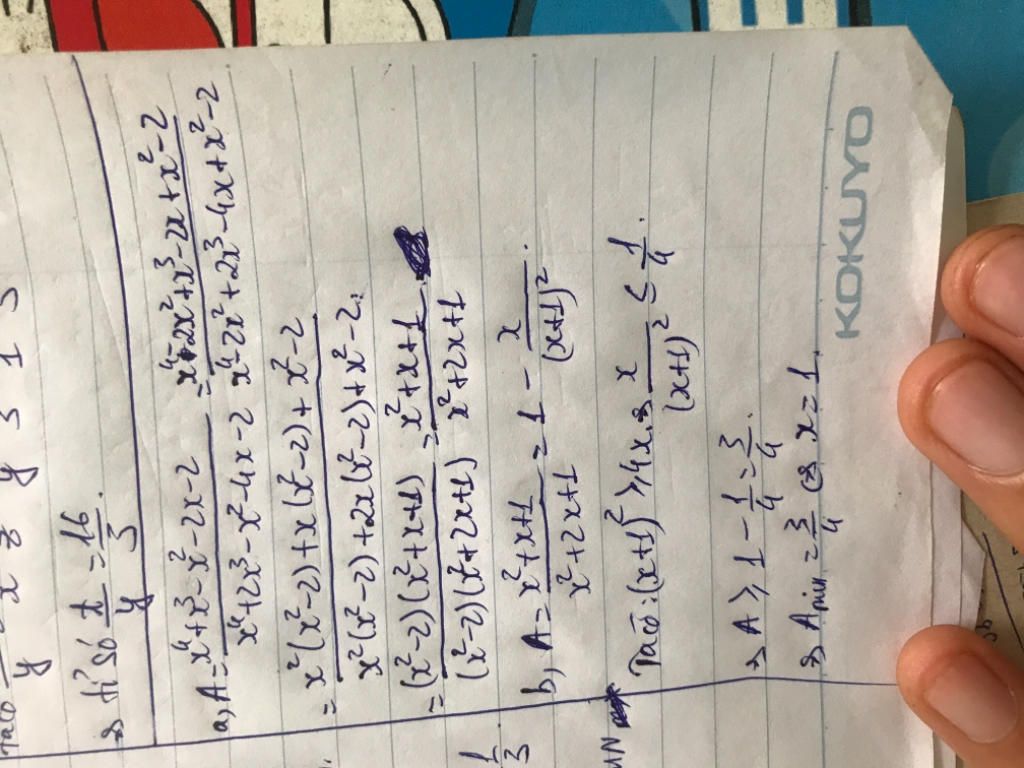 Ta có x z y 3 1 5
y
=> tỉ số x/y = 16/3.
a, A = (x⁴+x³-x²-2x-2)/(x⁴+2x³-x²-4x-2) = (x⁴-2x²+x³-2x+x²-2)/(x⁴-2x²+2x³-4x+x²-2)
= (x²(x²-2)+x(x²-2)+x²-2)/(x²(x²-2)+2x(x²-2)+x²-2)
= ((x²-2)(x²+x+1))/((x²-2)(x²+2x+1)) = (x²+x+1)/(x²+2x+1)
1/3
b, A = (x²+x+1)/(x²+2x+1) = 1 - x/(x+1)².
Ta có: (x+1)² ≥ 4x => x/(x+1)² ≤ 1/4.
=> A ≥ 1 - 1/4 = 3/4.
=> Amin = 3/4 <=> x=1.
KOKUYO